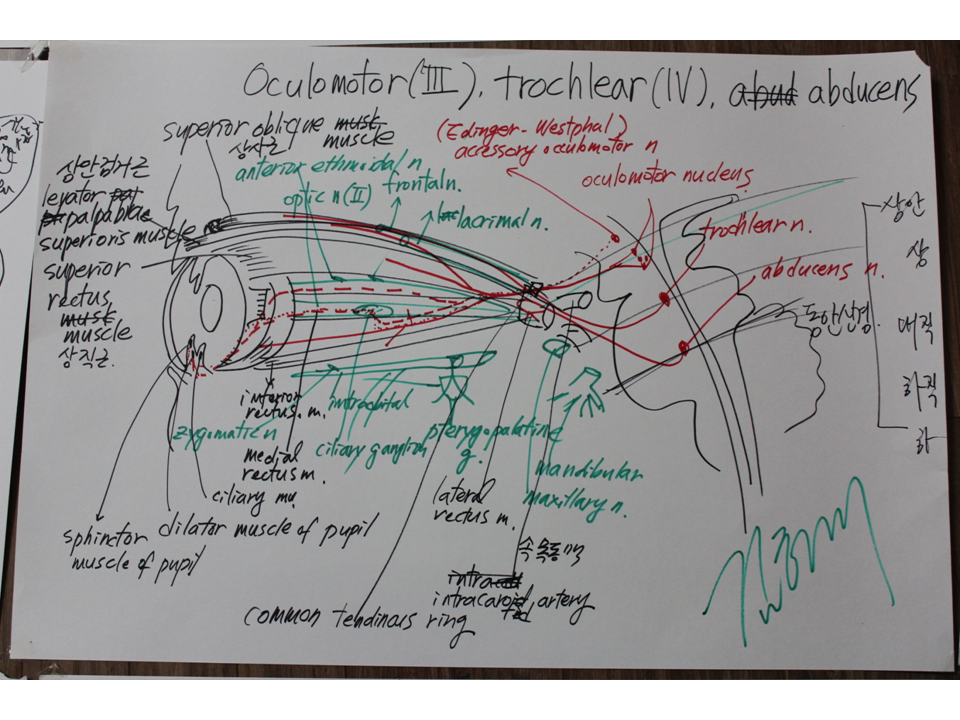 Oculomotor (III), trochlear (IV), abducens
superior oblique muscle
상사근
anterior ethmoidal n
optic n (II)
frontal n.
lacrimal n.
(Edinger-Westphal)
accessory oculomotor n
oculomotor nucleus
trochlear n.
abducens n.
동안신경.
상안검거근
levator
palpabrae
superioris muscle
superior
rectus
muscle
상직근.
inferior
rectus. m.
introrbital
zygomatic n
medial
rectus m.
ciliary ganglion
pterygopalatine
g.
mandibular
maxillary n.
ciliary mu.
lateral
rectus m.
sphinctor
muscle of pupil
dilator muscle of pupil
속목동맥
artery
common tendinous ring
상안
상
내직
하직
하